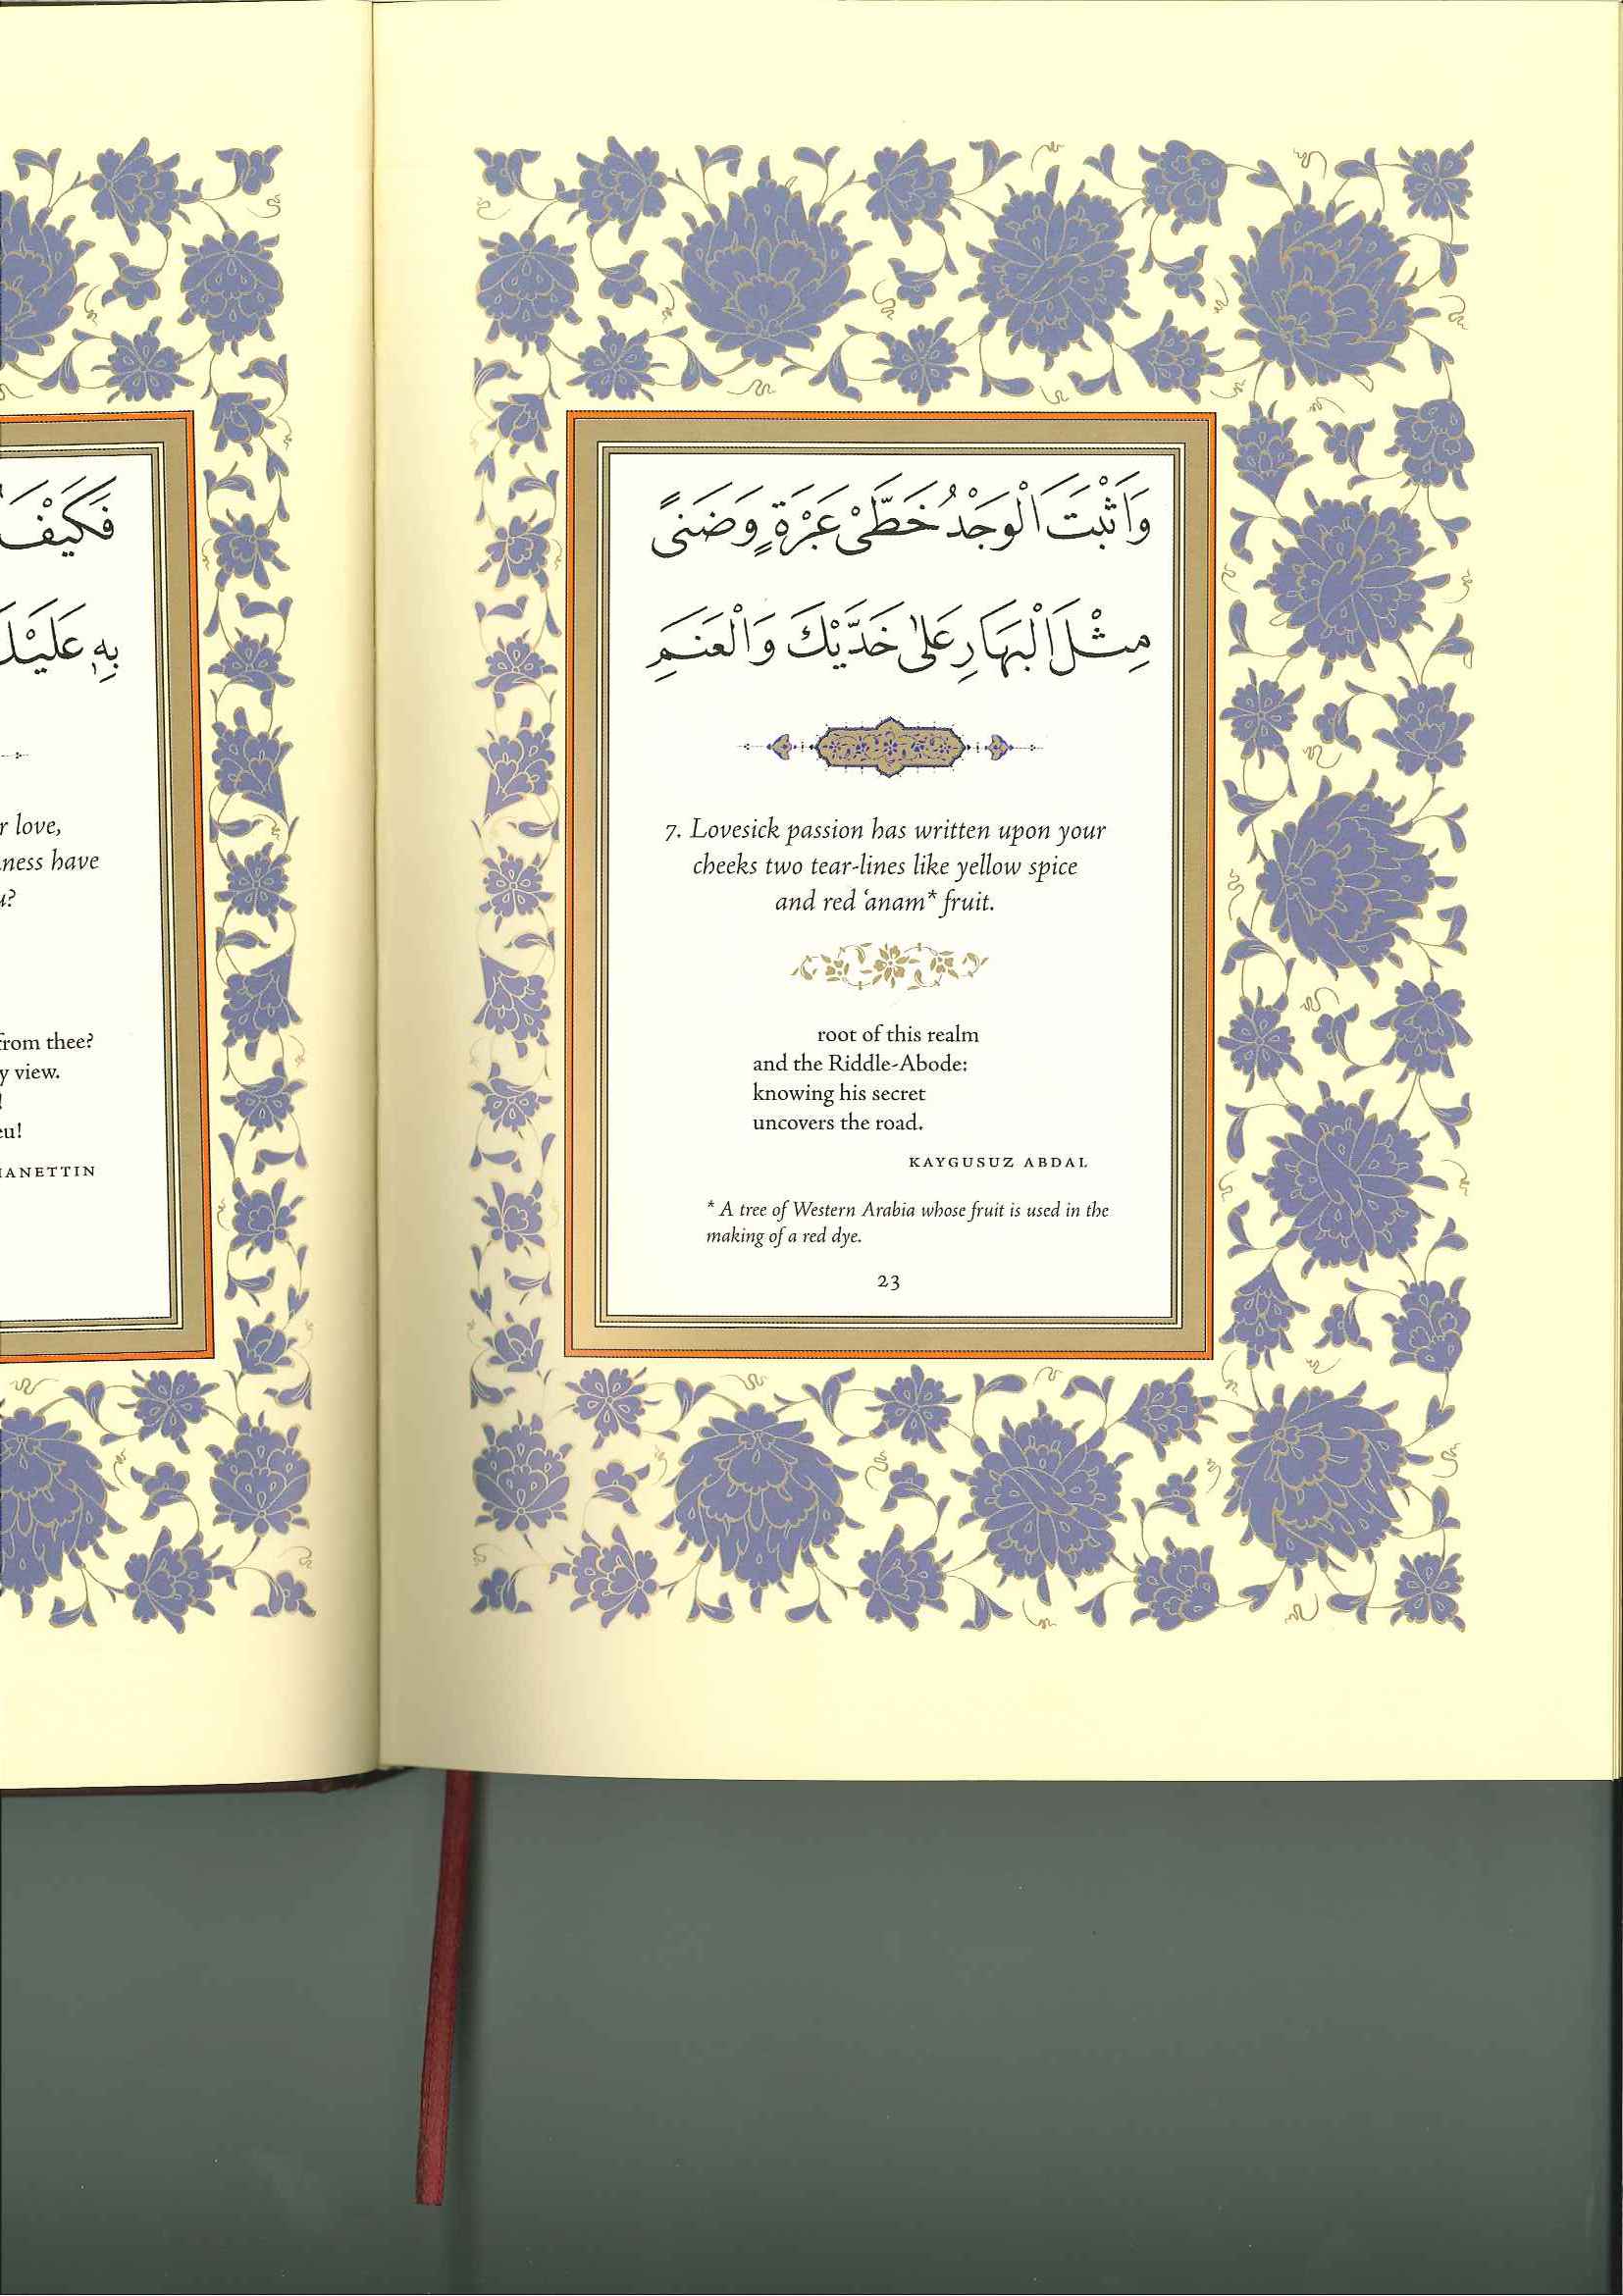 فَكَيْفَ
بِهِ عَلَيْكَ
r love,
ness have
u?
from thee?
y view.
!
eu!
IANETTIN
وَاَثْبَتَ الْوَجْدُ خَطَّىْ عَبْرَةٍ وَضَنىً
مِثْلَ الْبَهَارِ عَلىٰ خَدَّيْكَ وَالْعَنَمِ
7. Lovesick passion has written upon your
cheeks two tear-lines like yellow spice
and red ‘anam* fruit.
root of this realm
and the Riddle-Abode:
knowing his secret
uncovers the road.
KAYGUSUZ ABDAL
* A tree of Western Arabia whose fruit is used in the
making of a red dye.
23